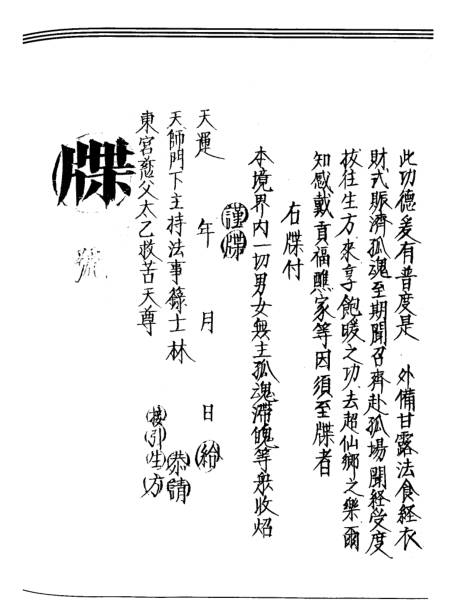 此功德爰有普度是　外備甘露法食経衣
財式賑濟孤魂至期聞召齊赴孤場聞経受度
拔往生方來享飽暖之功去超仙鄉之樂爾
知感戴貢福醮家等因須至牒者
右牒付
本境界内一切男女無主孤魂滯魄等衆收炤
謹牒
天運　年　月　日給
天師門下主持法事籙士林　恭請
東宮慈父太乙救苦天尊　接引生方
牒